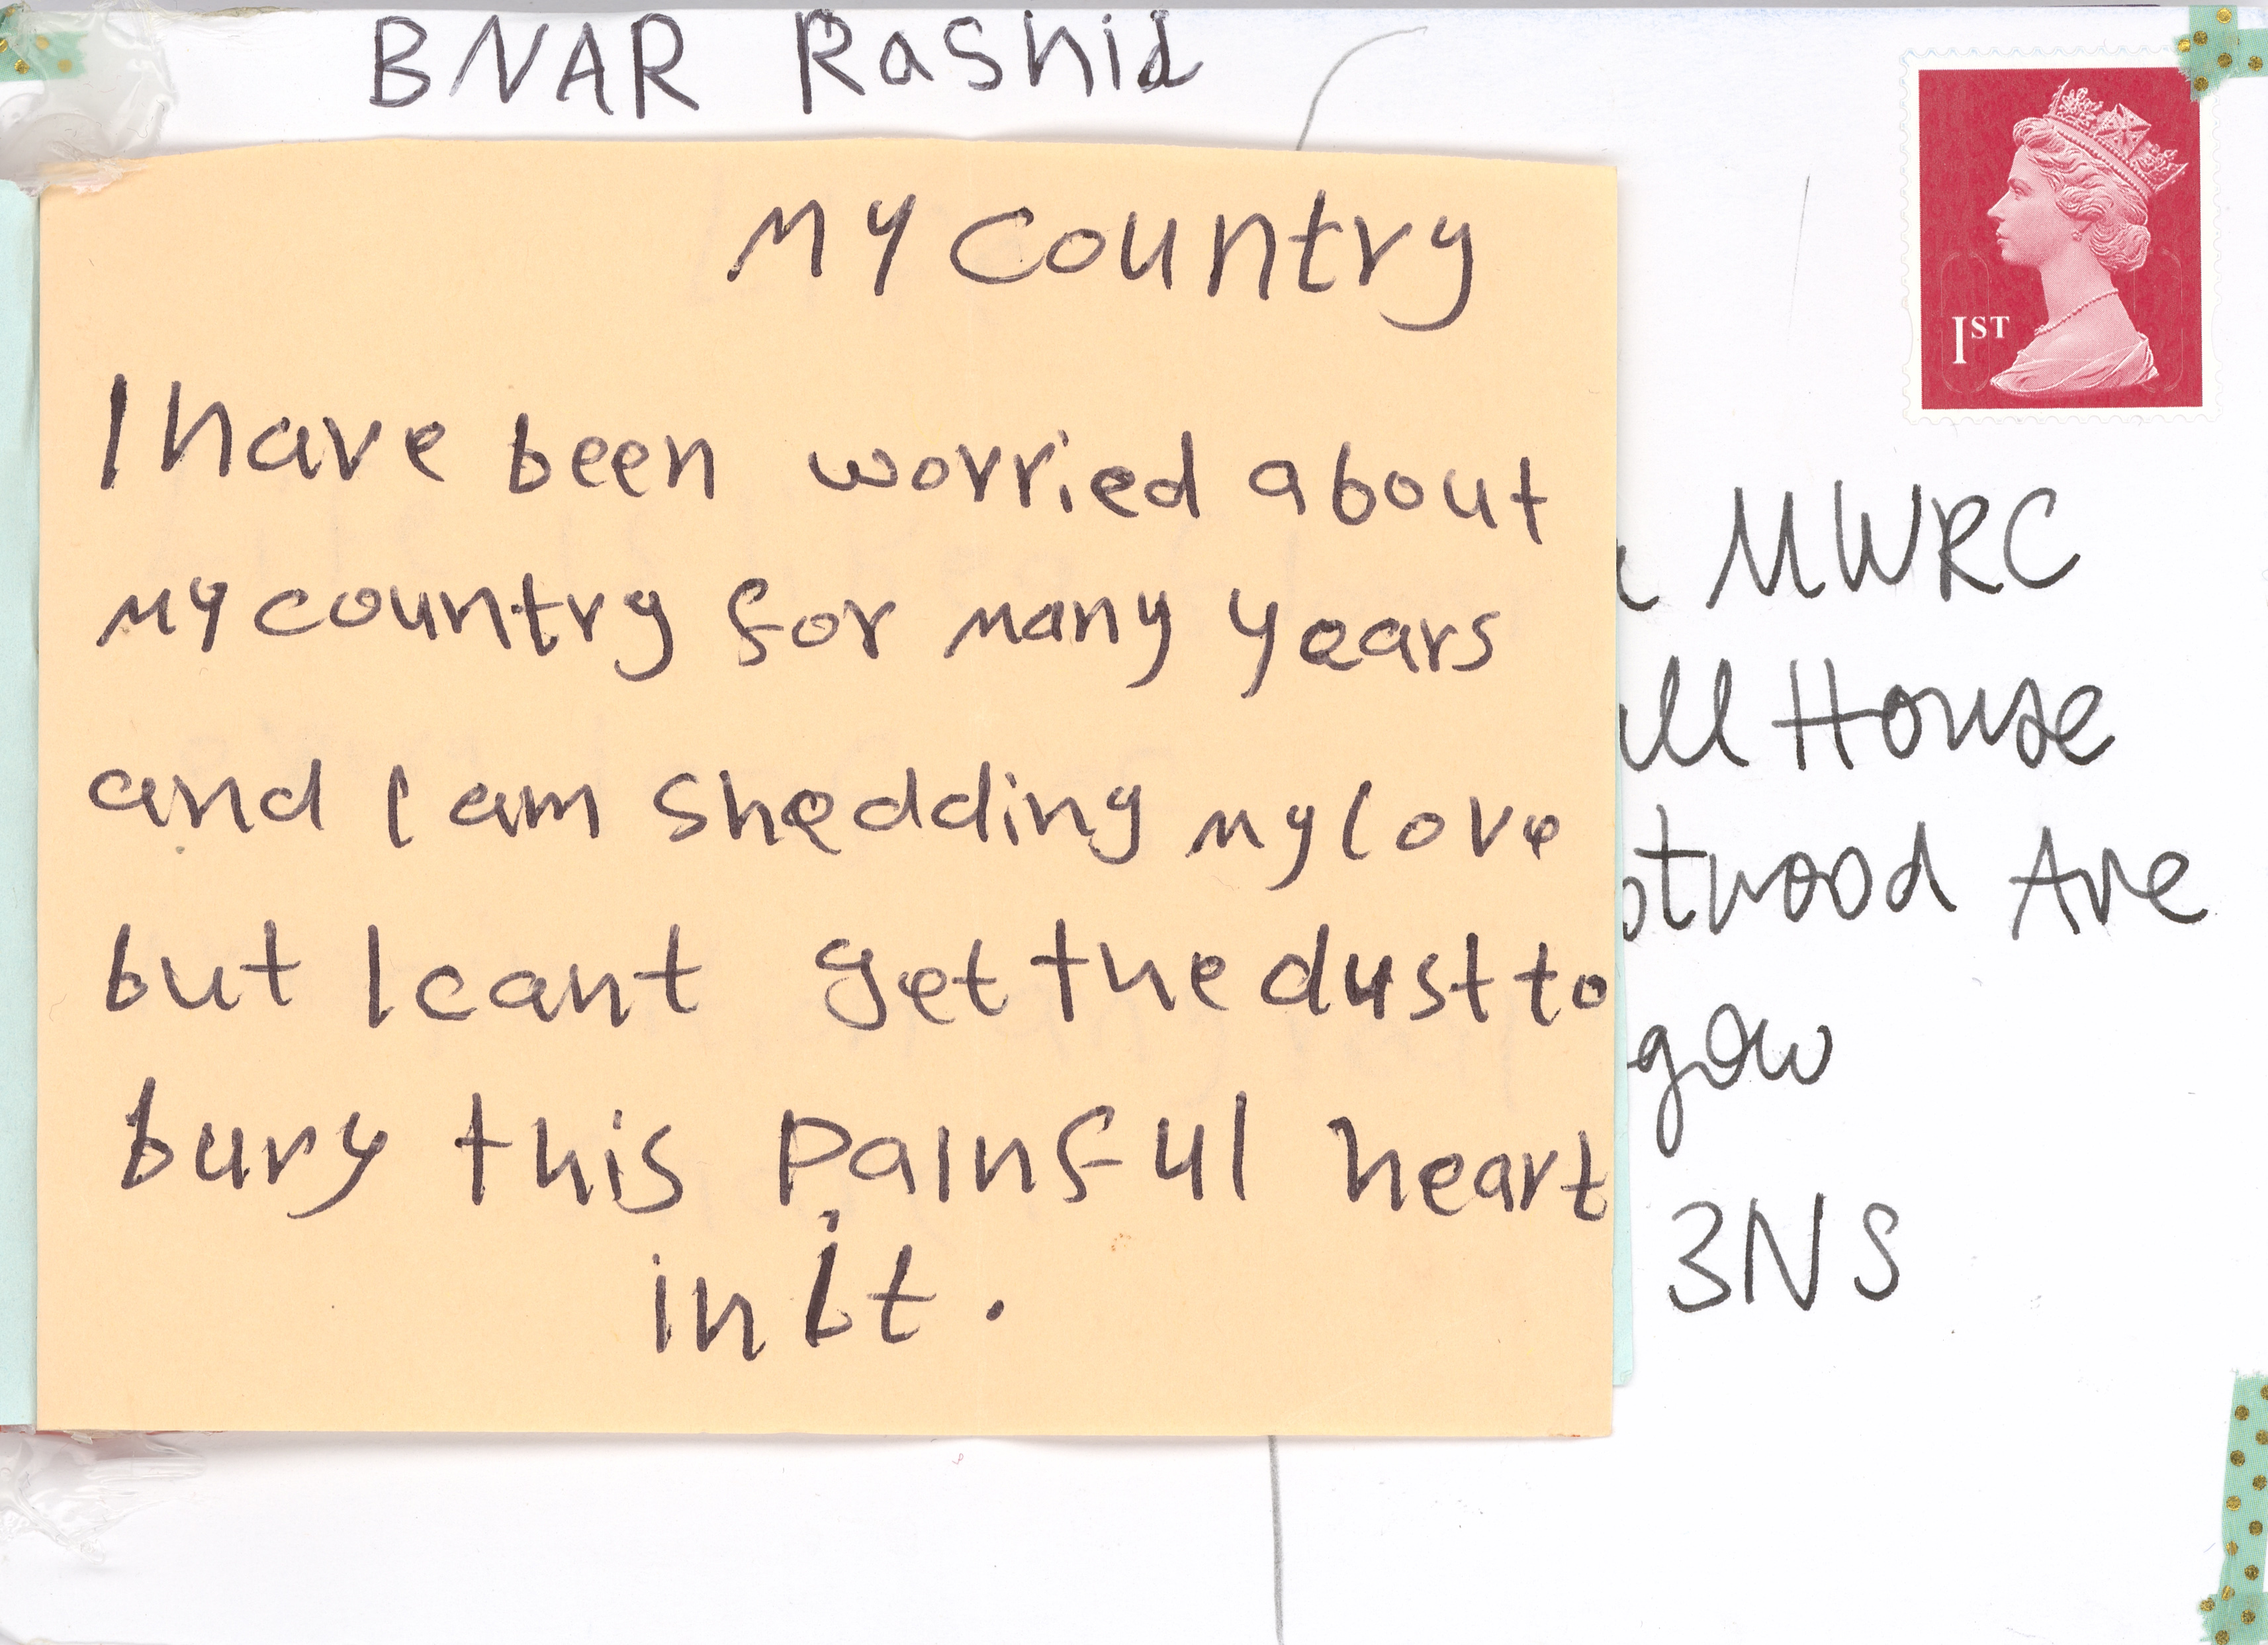 BNAR Rashid
My country
I have been worried about
my country for many years
and I am shedding my love
but I cant get the dust to
bury this painful heart
in it.
1ST
MWRC
House
Ave
3NS